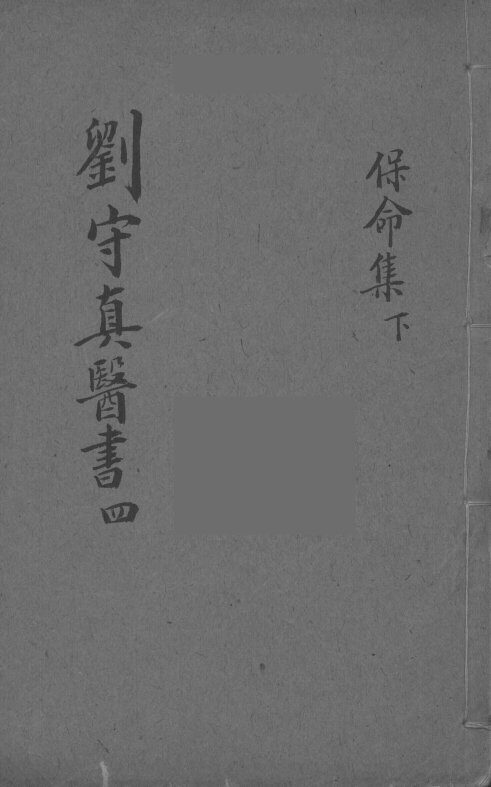 保命集下
劉守真醫書四